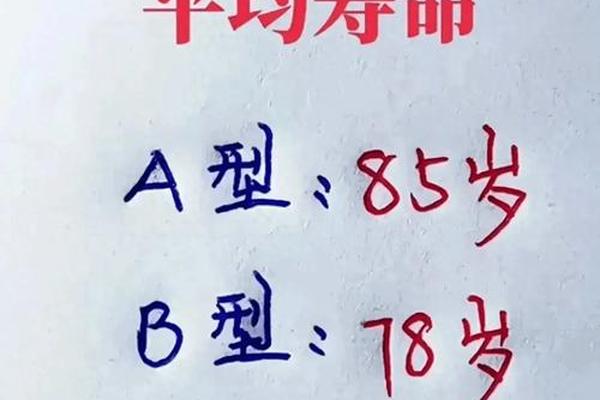 平均寿命
A型：85岁
B型：78岁